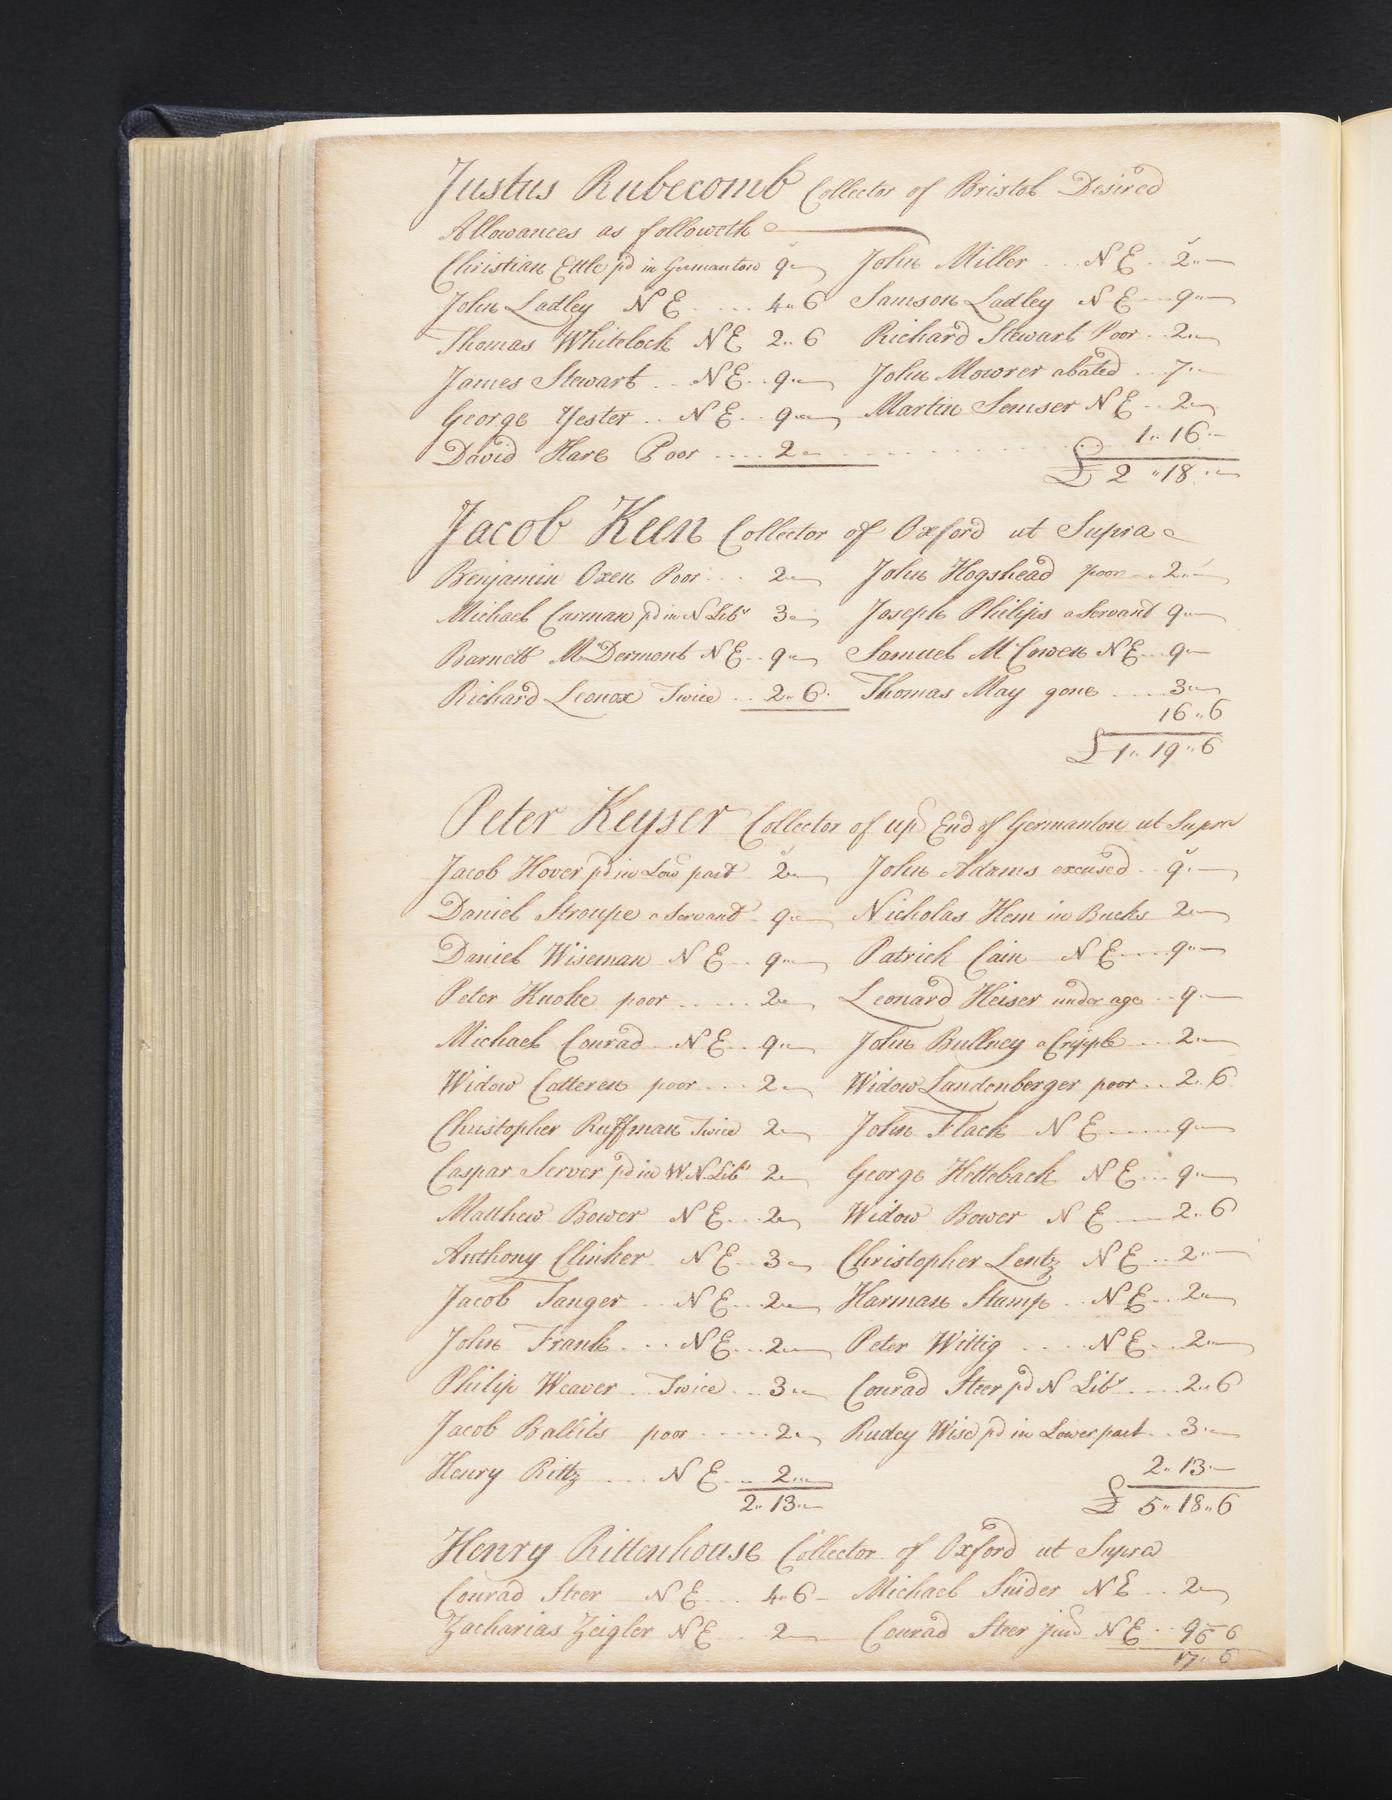 Justus Rubecomb Collector of Bristol Desired
Allowances as followeth
Christian Ettle pd in Germanton 9"— John Miller .. N E .. 2"—
John Ladley N E .... 4" 6 Samson Ladley N E ... 9"—
Thomas Whitelock N E 2" 6 Richard Stewart Poor .. 2"—
James Stewart .. N E .. 9"— John Mowrer abated ... 7"—
George Yester .. N E .. 9"— Martin Semser N E .. 2"—
David Hare Poor .... 2"— 1" 16"—
£ 2 "18"—
Jacob Keen Collector of Oxford ut Supra
Benjamin Oxen Poor ... 2"— John Hogshead poor .. 2"—
Michael Carman pd in N Libs 3"— Joseph Philips a Servant 9"—
Barnett McDermont N E .. 9"— Samuel McCowen N E .. 9"—
Richard Leonox Twice .. 2" 6 Thomas May gone .... 3"—
16" 6
£ 1" 19" 6
Peter Keyser Collector of upr End of Germanton ut Supra
Jacob Hover pd in Low part 2"— John Adams excused .. 9"—
Daniel Stroupe a Servant 9"— Nicholas Hem in Bucks 2"—
Daniel Wiseman N E .. 9"— Patrick Cain N E .... 9"—
Peter Knoke poor ..... 2"— Leonard Heiser under age .. 9"—
Michael Conrad N E .. 9"— John Bullney a Cripple ... 2"—
Widow Catteren poor ... 2"— Widow Landenberger poor .. 2" 6
Christopher Ruffman Twice 2"— John Flack N E .... 9"—
Caspar Server pd in W.N. Libs 2"— George Hetteback N E ... 9"—
Matthew Bower N E ... 2"— Widow Bower N E ... 2" 6
Anthony Clinker N E .. 3"— Christopher Lentz N E .. 2"—
Jacob Tanger .. N E ... 2"— Harman Stump .. N E .. 2"—
John Frank ... N E ... 2"— Peter Wittig .... N E ... 2"—
Philip Weaver .. Twice ... 3"— Conrad Steer pd N Libs .... 2" 6
Jacob Ballits poor ..... 2"— Rudey Wise pd in Lower part .. 3"—
Henry Rittz ... N E .. 2"— 2" 13"—
2" 13"— £ 5" 18" 6
Henry Rittenhouse Collector of Oxford ut Supra
Conrad Steer N E ... 4" 6 Michael Snider N E .. 2"—
Zacharias Zeigler N E .. 2"— Conrad Steer junr N E .. 9 6 6
17" 6